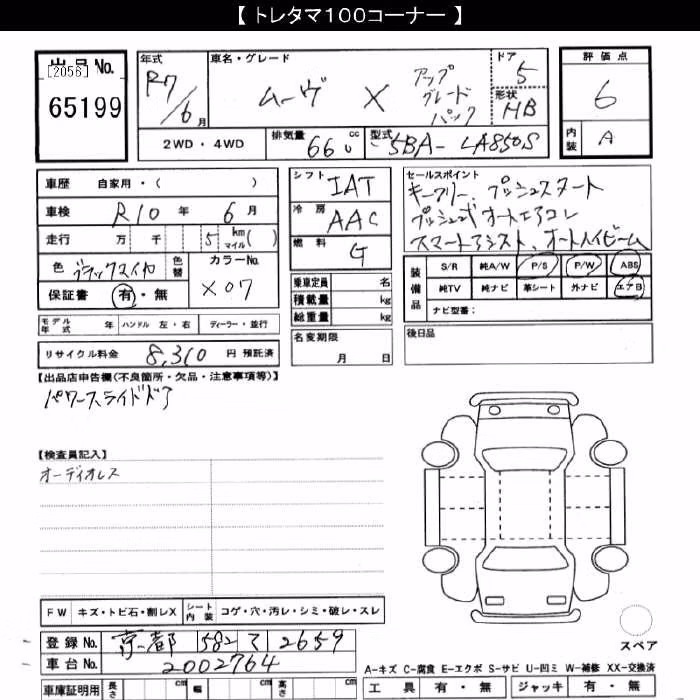 【 トレタマ100コーナー 】
出品 No.
[2056]
65199
年式
R7/6 月
車名・グレード
ムーヴ X アップグレードパック
ドア
5
形状
HB
評価点
6
内装 A
2WD・4WD
排気量 660 cc
型式 5BA-LA850S
車歴 自家用・( )
車検 R10 年 6 月
走行 万 千 5 km マイル ( )
色 ブラックマイカ 色替
カラーNo.
X07
保証書 有・無
モデル年式 年 ハンドル 左・右 ディーラー・並行
リサイクル料金 8,310 円 預託済
シフト IAT
冷房 AAC
燃料 G
乗車定員 名
積載量 kg
総重量 kg
名変期限
月 日
セールスポイント
キーフリー、プッシュスタート
プッシュ式オートエアコン
スマートアシスト、オートハイビーム
装備品
S/R 純A/W P/S P/W ABS
純TV 純ナビ 革シート 外ナビ エアB
ナビ型番：
後日品
【出品店申告欄(不良箇所・欠品・注意事項等)】
パワースライドドア
【検査員記入】
オーディオレス
FW キズ・トビ石・割レX シート内装 コゲ・穴・汚レ・シミ・破レ・スレ
登録 No. 京都 582 マ 2659
車台 No. 2002764
車庫証明用 長さ cm 幅 cm 高さ cm
スペア
A-キズ C-腐食 E-エクボ S-サビ U-凹ミ W-補修 XX-交換済
工具 有・無 ジャッキ 有・無